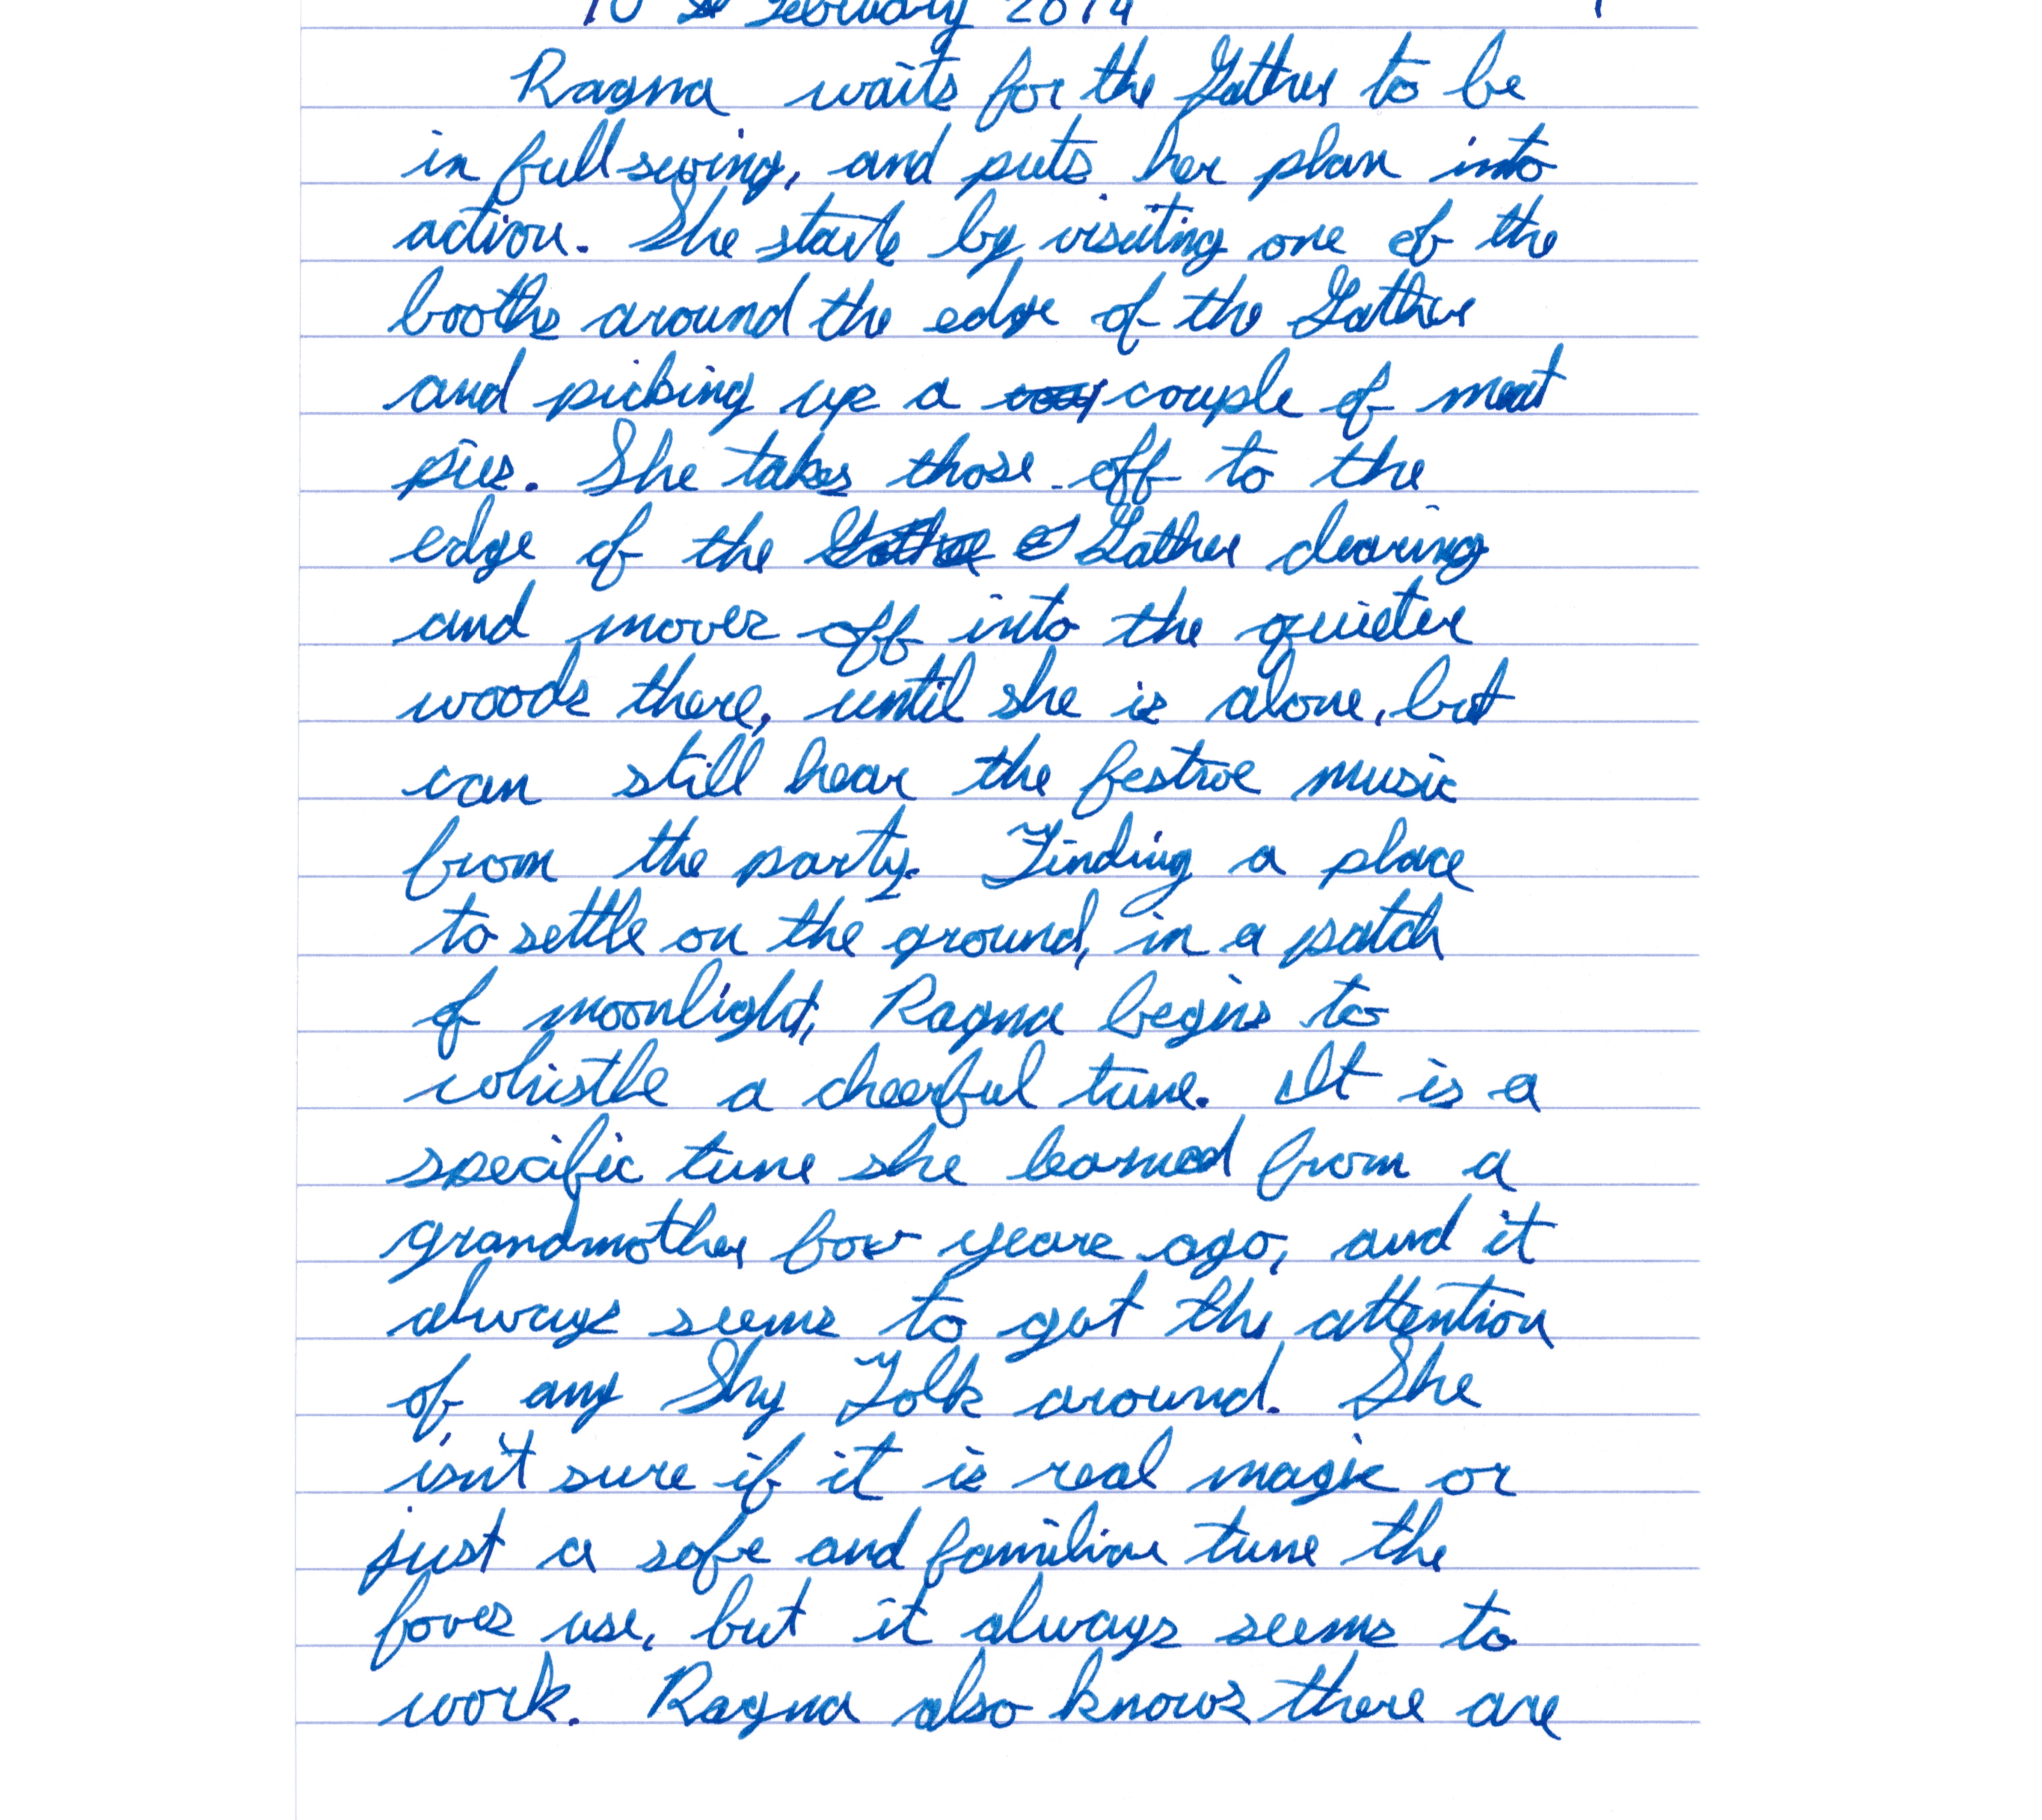 10 February 2014
Ragna waits for the Gather to be
in full swing, and puts her plan into
action. She starts by visiting one of the
booths around the edge of the Gather
and picking up a couple of meat
pies. She takes those off to the
edge of the Gather clearing
and moves off into the quieter
woods there, until she is alone, but
can still hear the festive music
from the party. Finding a place
to settle on the ground, in a patch
of moonlight, Ragna begins to
whistle a cheerful tune. It is a
specific tune she learned from a
grandmother fox years ago, and it
always seems to get the attention
of any Shy Folk around. She
isn't sure if it is real magic or
just a safe and familiar tune the
foxes use, but it always seems to
work. Ragna also knows there are